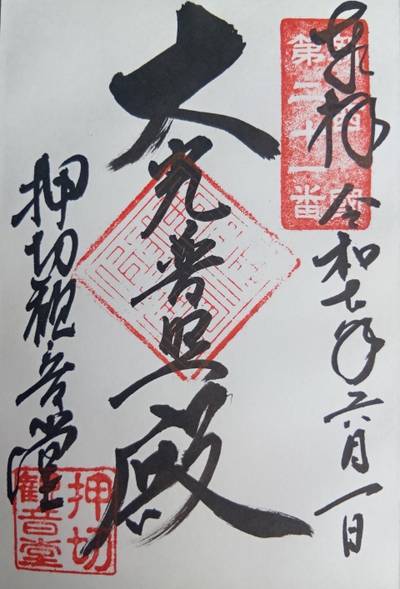 奉拝
第二十一番
令和七年六月一日
大光普照殿
押切観音堂
押切
観音堂